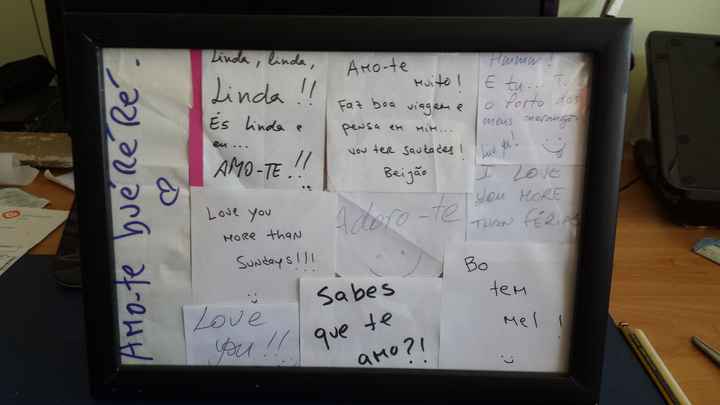 AMO-te buéRéRé.
Linda, linda,
Linda !!
És linda e
eu...
AMO-TE !!
Amo-te
Muito!
Faz boa viagem e
pensa em mim...
vou ter saudades!
Beijão
E tu...
o Porto dos
meus
I LOVE
YOU MORE
THAN
Love you
More than
Sundays!!!
Adoro-te
Love
you!!
Sabes
que te
amo?!
Bo
tem
Mel!